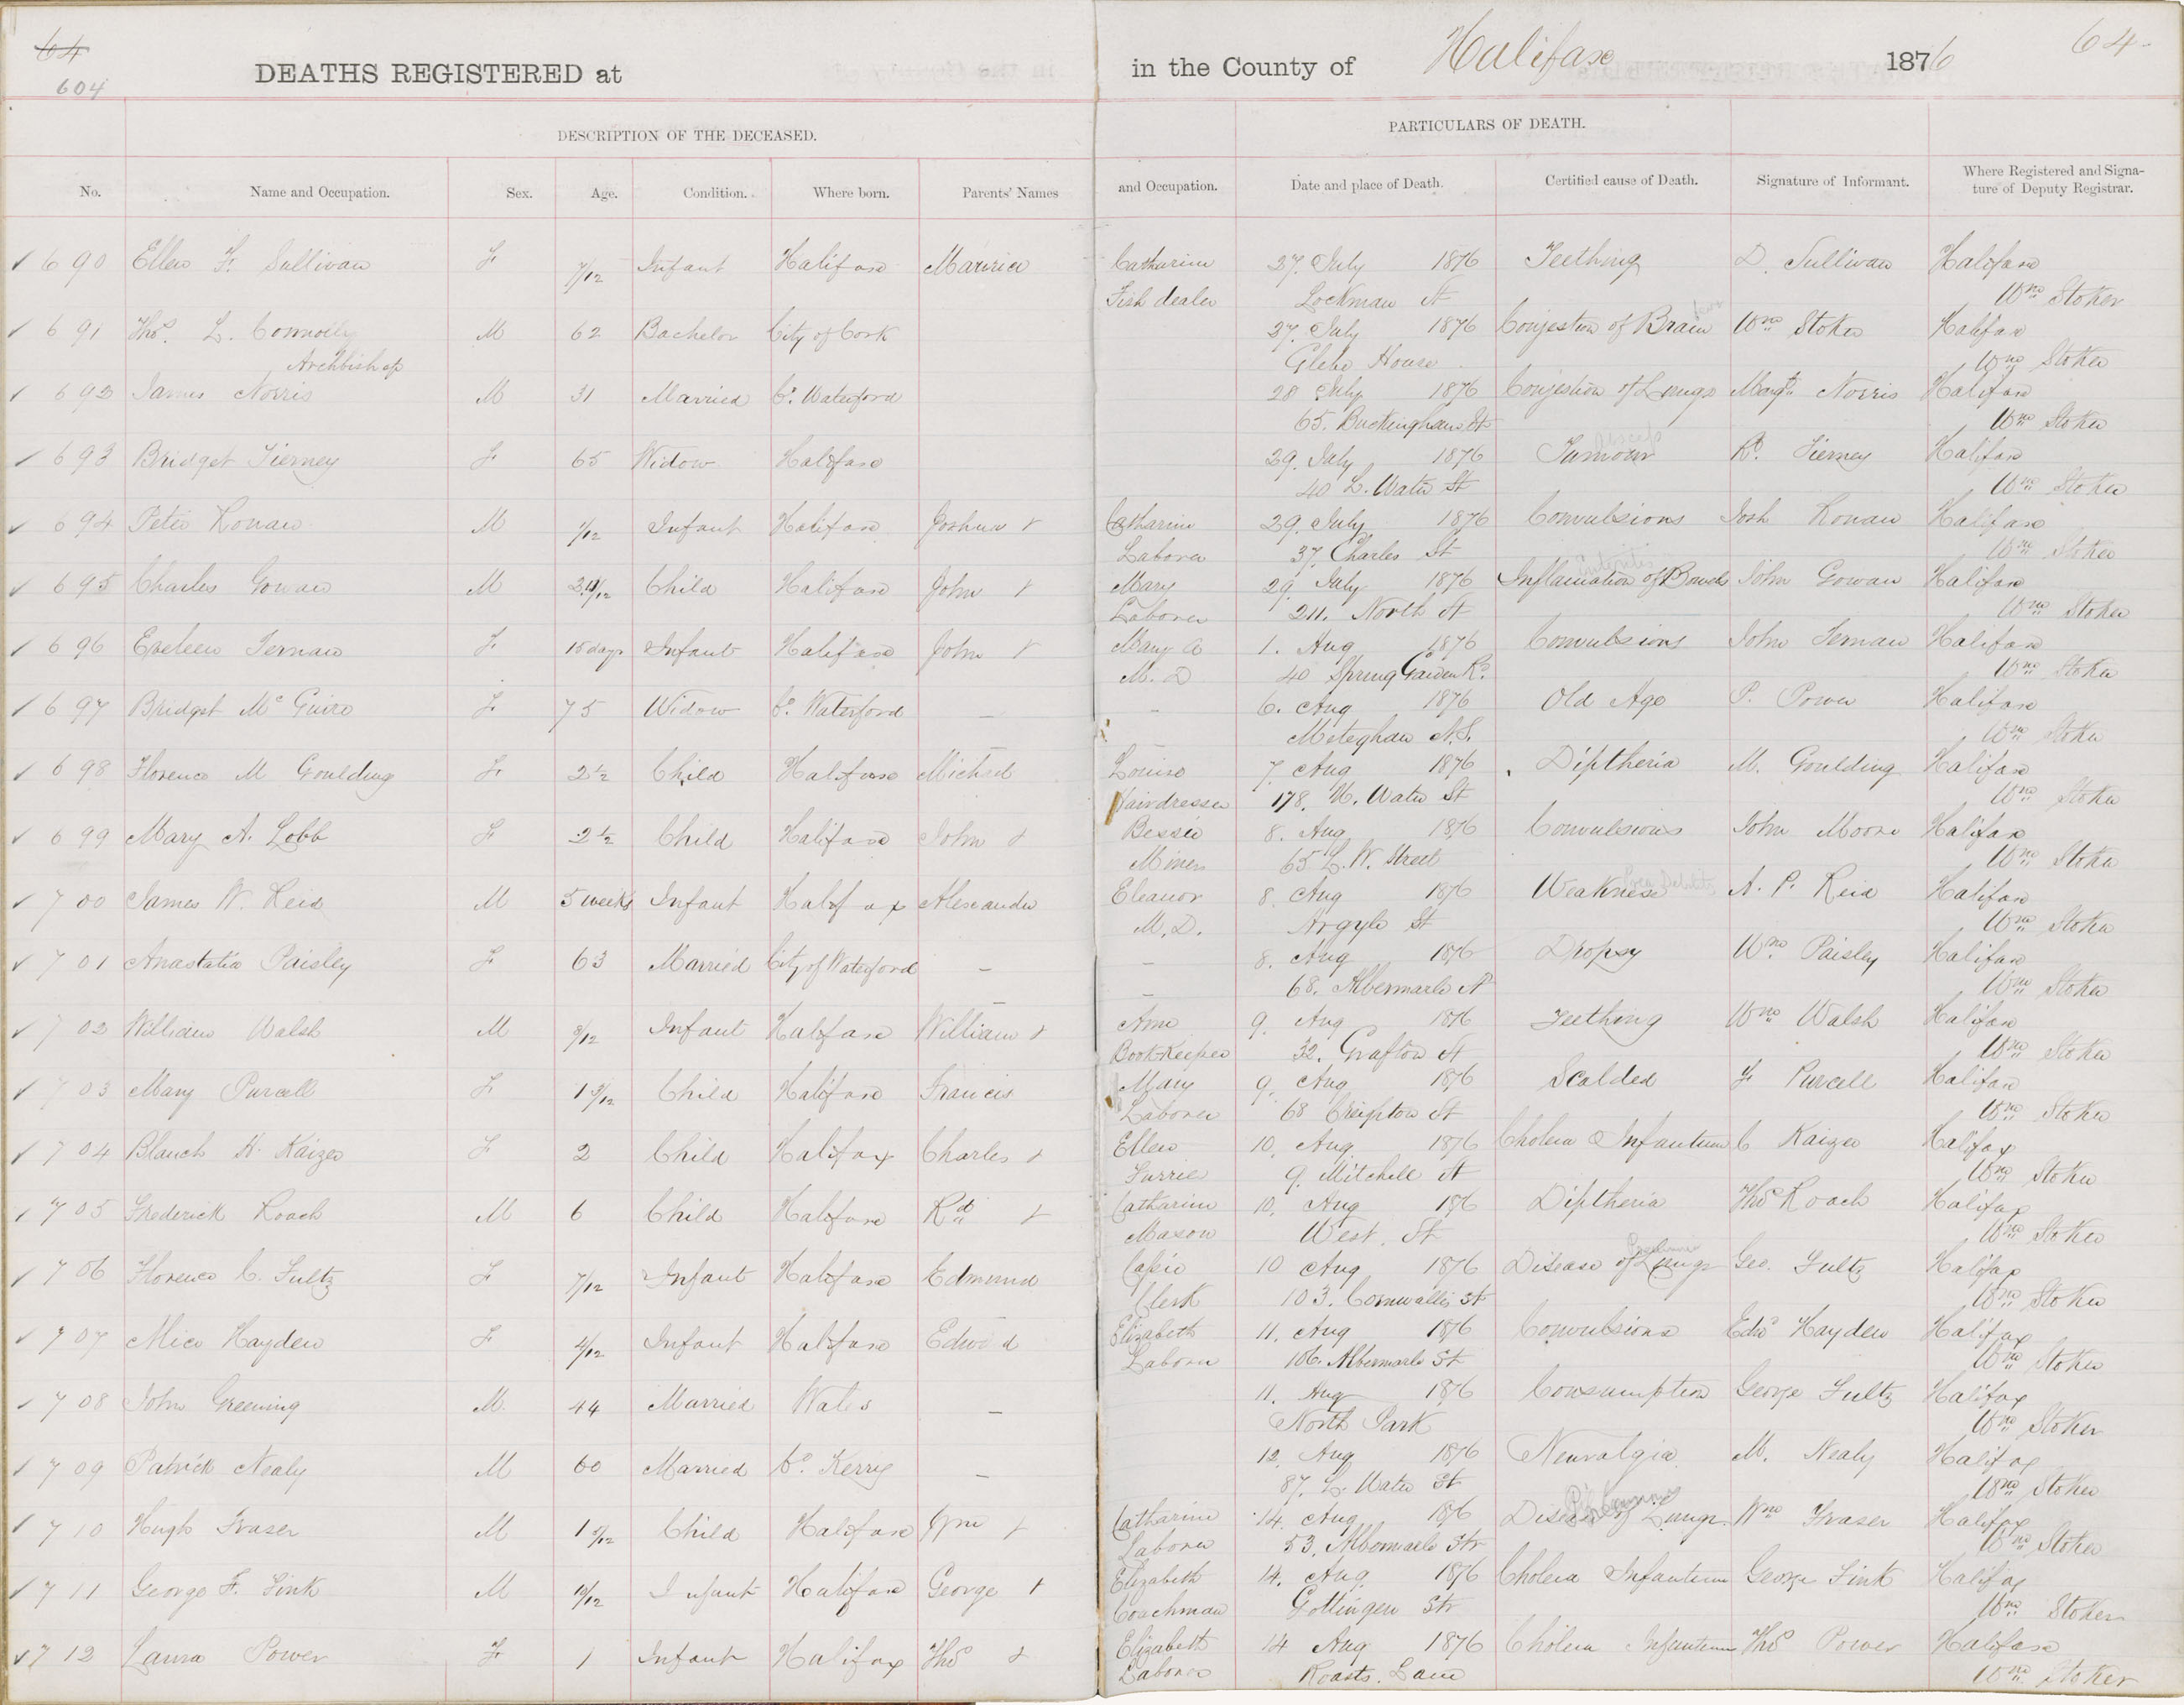 64
604
DEATHS REGISTERED at in the County of Halifax 1876 64
DESCRIPTION OF THE DECEASED. PARTICULARS OF DEATH.
No. Name and Occupation. Sex. Age. Condition. Where born. Parents' Names and Occupation. Date and place of Death. Certified cause of Death. Signature of Informant. Where Registered and Signature of Deputy Registrar.
690 Ellen F. Sullivan F 7/12 Infant Halifax Maurice Catharine 27. July 1876 Teething D. Sullivan Halifax
Fish dealer Lockman St Wm Stoker
691 Thos. L. Connolly M 62 Bachelor City of Cork 27. July 1876 Conjestion of Brain Wm Stoker Halifax
Archbishop Glebe House Wm Stoker
692 James Norris M 31 Married Co. Waterford 28 July 1876 Conjestion of Lungs Margt Norris Halifax
65. Buckingham St Wm Stoker
693 Bridget Tierney F 65 Widow Halifax 29. July 1876 Tumour Rd. Tierney Halifax
40 L. Water St Wm Stoker
694 Peter Ronan M 1/12 Infant Halifax Joshua & Catharine 29. July 1876 Convulsions Josh Ronan Halifax
Laborer 37. Charles St Wm Stoker
695 Charles Gowan M Child Halifax John & Mary 29. July 1876 Inflamation of Bowels John Gowan Halifax
Laborer 211. North St Wm Stoker
696 Eveleen Ternan F 15 days Infant Halifax John & Mary A 1. Aug 1876 Convulsions John Ternan Halifax
M. D. 40 Spring Garden Rd. Wm Stoker
697 Bridget McGuire F 75 Widow Co. Waterford — - 6. Aug 1876 Old Age P. Power Halifax
— Meteghan N.S. Wm Stoker
698 Florence M Goulding F 2 1/2 Child Halifax Michael Louise 7. Aug 1876 Diptheria M. Goulding Halifax
Hairdresser 178. U. Water St Wm Stoker
699 Mary A. Lobb F 2 1/2 Child Halifax John & Bessie 8. Aug 1876 Convulsions John Moore Halifax
Miner 65 L. W. Street Wm Stoker
700 James W. Reid M 5 weeks Infant Halifax Alexander Eleanor 8. Aug 1876 Weakness A. P. Reid Halifax
M. D. Argyle St Wm Stoker
701 Anastatia Paisley F 63 Married City of Waterford — — 8. Aug 1876 Dropsy Wm Paisley Halifax
— 68. Albermarle St Wm Stoker
702 William Walsh M Infant Halifax William & Ann 9. Aug 1876 Teething Wm Walsh Halifax
Book-Keeper 32. Grafton St Wm Stoker
703 Mary Purcell F Child Halifax Francis Mary 9. Aug 1876 Scalded F Purcell Halifax
Laborer 68 Creighton St Wm Stoker
704 Blanch H. Kaizer F 2 Child Halifax Charles & Ellen 10. Aug 1876 Cholera Infantum C Kaizer Halifax
Furrier 9. Mitchell St Wm Stoker
705 Frederick Roach M 6 Child Halifax Rd & Catharine 10. Aug 1876 Diptheria Thos Roach Halifax
Mason West. St Wm Stoker
706 Florence C. Fultz F 7/12 Infant Halifax Edmund Cassie 10 Aug 1876 Disease of Lungs Geo. Fultz Halifax
Clerk 103. Cornwallis St Wm Stoker
707 Mice Hayden F 4/12 Infant Halifax Edward Elizabeth 11. Aug 1876 Convulsions Edwd Hayden Halifax
Laborer 106. Albermarle St Wm Stoker
708 John Greening M. 44 Married Wales — 11. Aug 1876 Consumption George Fultz Halifax
North Park Wm Stoker
709 Patrick Nealy M 60 Married Co. Kerry — 12. Aug 1876 Neuralgia M. Nealy Halifax
87. L. Water St Wm Stoker
710 Hugh Fraser M Child Halifax Wm & Catharine 14. Aug 1876 Disease of Lungs Wm Fraser Halifax
Laborer 53. Albermarle Str Wm Stoker
711 George F. Fink M 10/12 Infant Halifax George & Elizabeth 14. Aug 1876 Cholera Infantum George Fink Halifax
Coachman Gottingen Str Wm Stoker
712 Laura Power F 1 Infant Halifax Thos & Elizabeth 14 Aug 1876 Cholera Infantum Thos Power Halifax
Laborer Roasts. Lane Wm Stoker